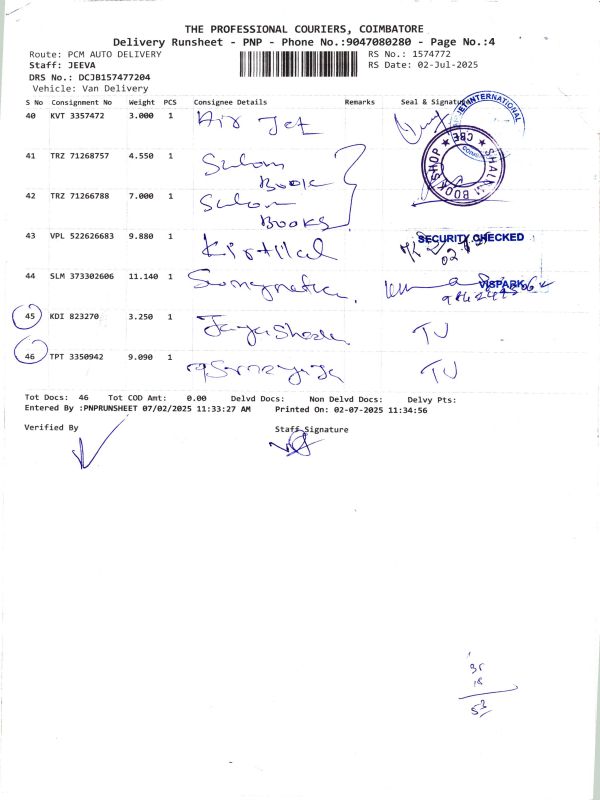 THE PROFESSIONAL COURIERS, COIMBATORE
Delivery Runsheet - PNP - Phone No.:9047080280 - Page No.:4
Route: PCM AUTO DELIVERY RS No.: 1574772
Staff: JEEVA RS Date: 02-Jul-2025
DRS No.: DCJB157477204
Vehicle: Van Delivery
S No Consignment No Weight PCS Consignee Details Remarks Seal & Signature
40 KVT 3357472 3.000 1 Air Jet
41 TRZ 71268757 4.550 1 Book
42 TRZ 71266788 7.000 1 Books
SHALOM BOOK SHOP CBE
43 VPL 522626683 9.880 1 Kirtilal SECURITY CHECKED
44 SLM 373302606 11.140 1 VISPARK
45 KDI 823270 3.250 1 TJ
46 TPT 3350942 9.090 1 TJ
Tot Docs: 46 Tot COD Amt: 0.00 Delvd Docs: Non Delvd Docs: Delvy Pts:
Entered By :PNPRUNSHEET 07/02/2025 11:33:27 AM Printed On: 02-07-2025 11:34:56
Verified By Staff Signature
35
18
53